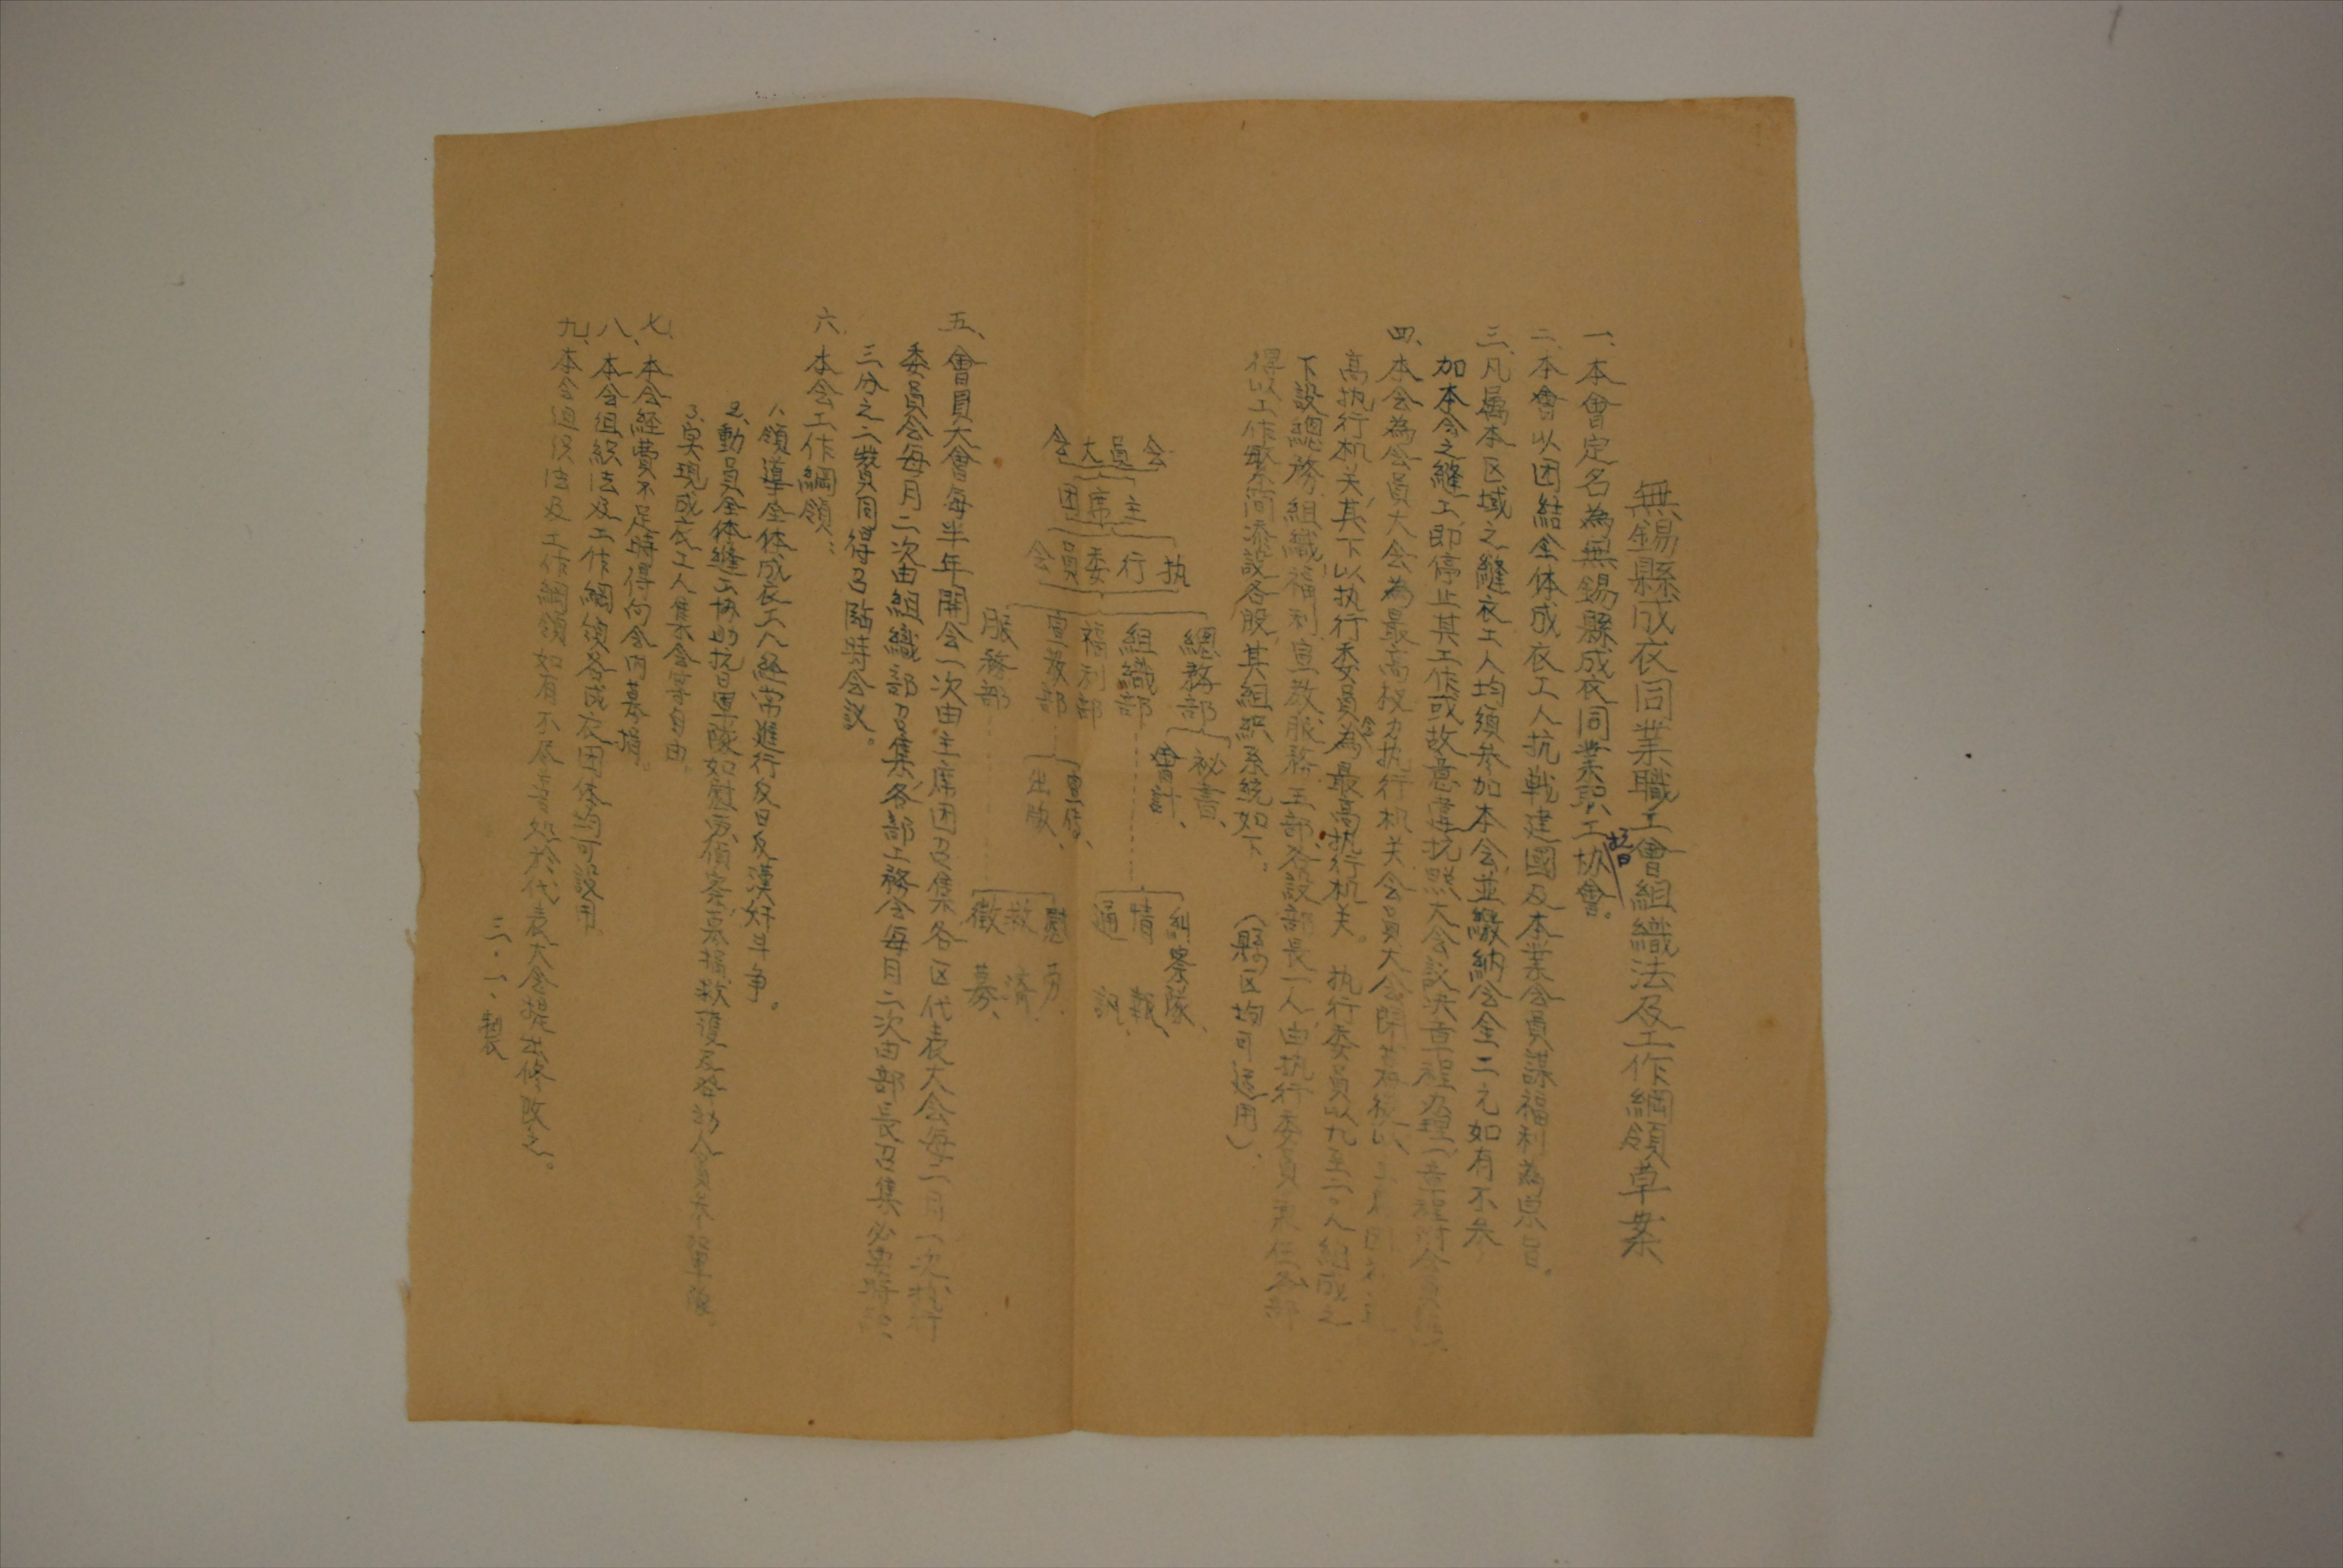 無錫縣成衣同業職工會組織法及工作綱領草案
一、本會定名為無錫縣成衣同業职工抗日协會。
二、本會以团結全体成衣工人抗戰建國及本業会員謀福利為宗旨。
三、凡属本区域之縫衣工人均須參加本会並繳納会金二元如有不參
加本会之縫工即停止其工作或故意違抗照大会議決章程办理
四、本会為会員大会為最高权力执行机关会員大会
高执行机关其下以执行委員会為最高执行机关。执行委員以九至二人組成之
下設總務組織福利宣教服務五部各設部長一人由执行委員
得以工作繁简添設各股其組織系統如下:（縣区均可适用）、
会員大会
主席团
执行委員会
總務部
組織部
福利部
宣教部
服務部
秘書、
會計、
宣傳、
出版、
糾察隊、
情報、
通訊、
慰劳、
救济、
徵募、
五、會員大會每半年開会一次由主席团召集各区代表大会每二月一次执行
委員会每月二次由組織部召集各部工務会每月二次由部長召集必要時
三分之二贊同得召臨時会议。
六、本会工作綱領:
1、領導全体成衣工人經常進行反日反漢奸斗争。
2、動員全体縫工协助抗日軍隊如慰劳偵察募捐救護
3、实現成衣工人集会等自由
七、本会經費不足時得向会内募捐。
八、本会组织法及工作綱領各成衣团体均可設用
九、本会组织法及工作綱領如有不尽善处於代表大会提出修改之。
三、一、製